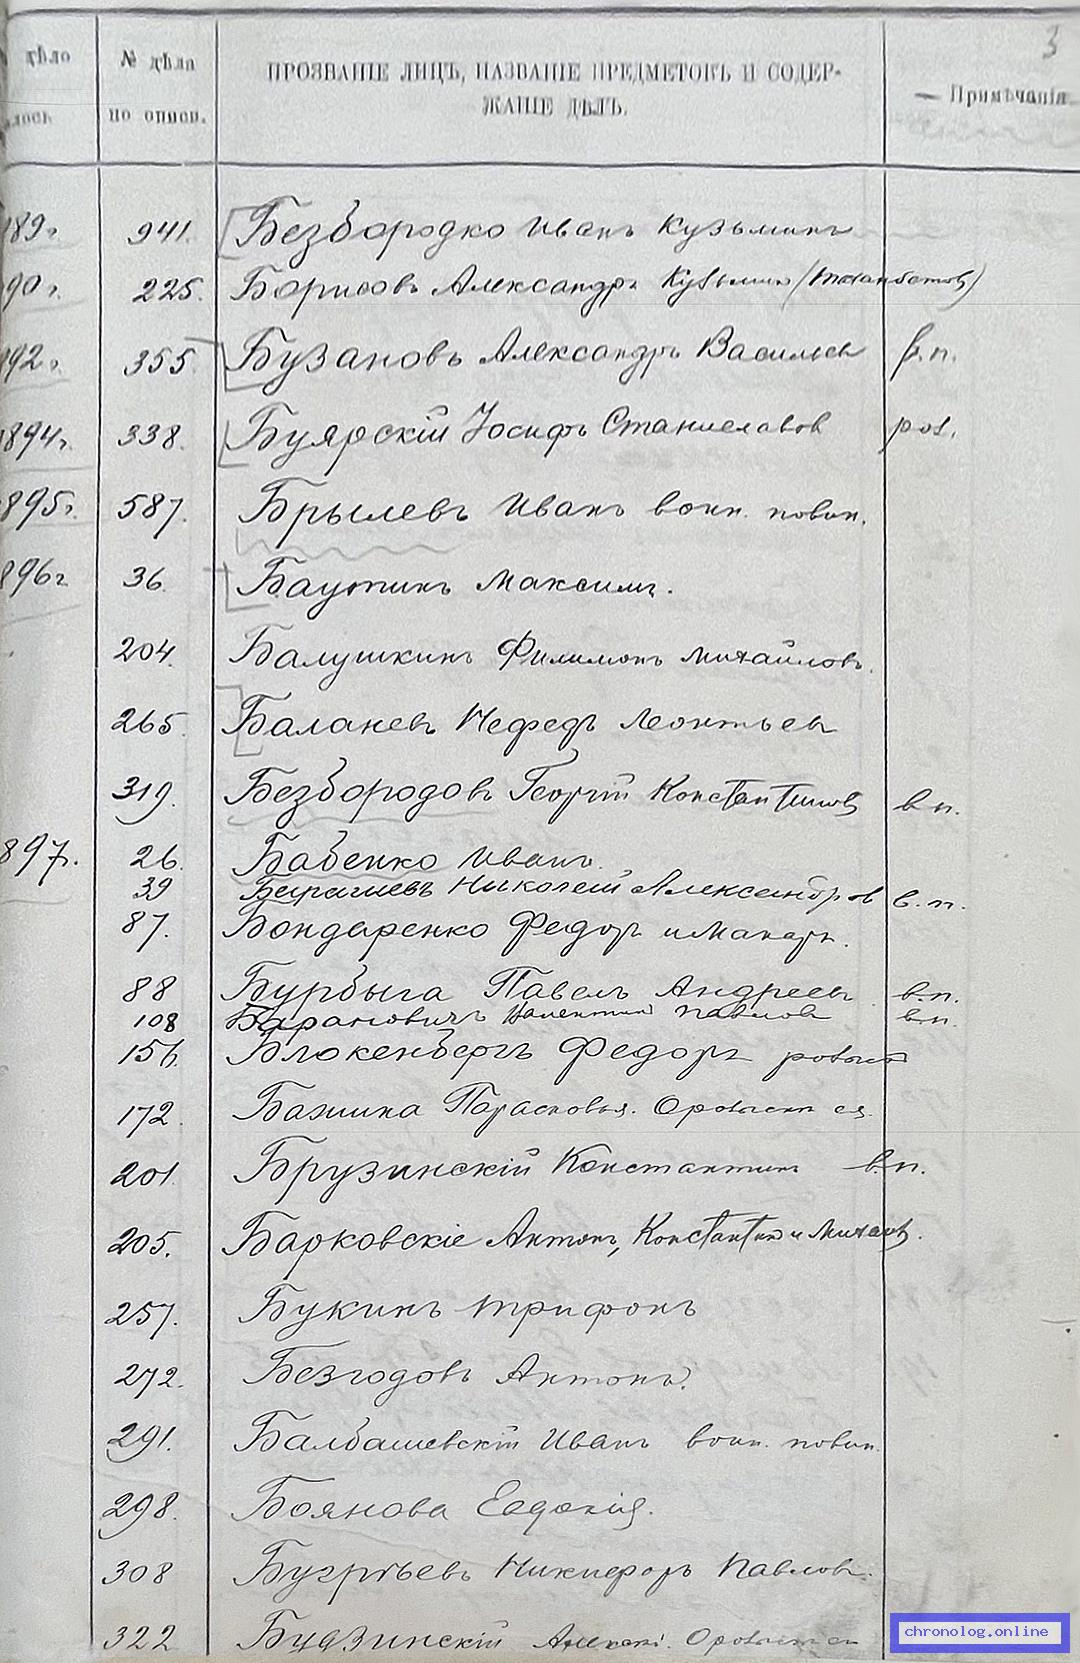 3
дѣло № дѣла ПРОЗВАНІЕ ЛИЦЪ, НАЗВАНІЕ ПРЕДМЕТОВЪ И СОДЕР- Примѣчанія
лось по описи. ЖАНІЕ ДѢЛЪ.
189г. 941. Безбородко Иванъ Кузьминъ
90г. 225. Борисовъ Александръ Кузьминъ
892г. 355 Бузановъ Александръ Васильев в.п.
1894г. 338. Буярскій Іосифъ Станиславов роз.
895г. 587. Брылевъ Иванъ воин. повин.
896г 36. Баутинъ Максимъ.
204. Балушкинъ Филимонъ Михайловъ.
265. Баланевъ Нефедъ Леонтьев
319. Безбородовъ Георгій Константинов в п.
897г. 26. Бабенко Иванъ
39 Николай Александров в. п.
87. Бондаренко Федоръ и Макаръ.
88 Бурбыга Павелъ Андреев в.п.
108 Барановичъ Валентинъ Павлов в.п.
156. Блокенбергъ Федоръ розыск
172. Бажина Парасковья. О розыскъ ея.
201. Брузинскій Константинъ в.п.
205. Барковскіе Антонъ, Константин и Михаилъ.
257. Букинъ Трифонъ
272. Безгодовъ Антонъ.
291. Балбашевскій Иванъ воин. повин.
298. Боянова Евдокія.
308 Бугрѣевъ Никифоръ Павловъ.
322 Будзинскій Алексѣй. О розыск ея
chronolog.online